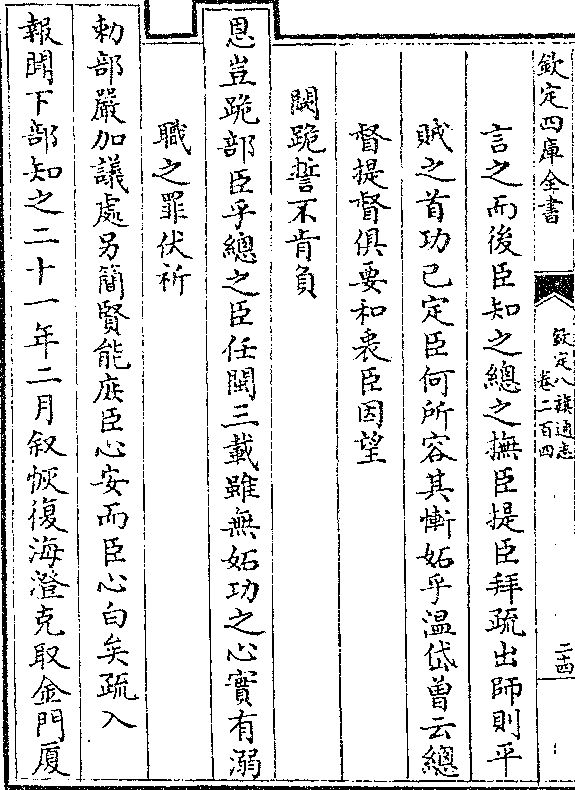 欽定四庫全書
欽定八旗通志
卷二百四
二十四
言之而後臣知之總之撫臣提臣拜疏出師則平
賊之首功已定臣何所容其慚妬乎温岱曽云總
督提督俱要和衷臣因望
闕跪誓不肯負
恩豈跪部臣乎總之臣任閩三載雖無妬功之心實有溺
職之罪伏祈
勅部嚴加議處另簡賢能庶臣心安而臣心白矣疏入
報聞下部知之二十一年二月叙恢復海澄克取金門厦